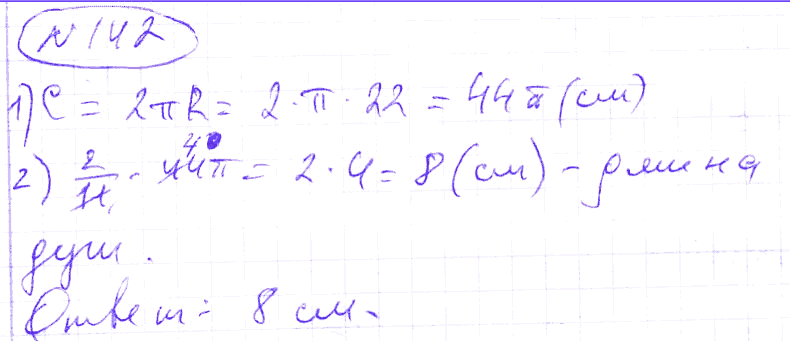 N 142
1) C = 2πR = 2·π·22 = 44π (см)
2) 2/11 · 44π = 2·4 = 8 (см) - длина
дуги.
Ответ: 8 см.